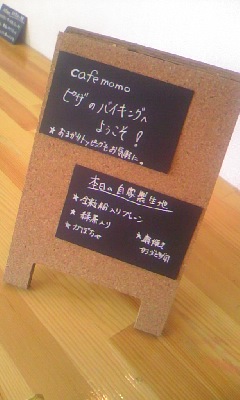 cafe momo
ピザのバイキングへ
ようこそ!
★おまかせトッピングもお気軽に。
本日の自家製生地
★全粒粉入りプレーン
★抹茶入り
★かぼちゃ
★